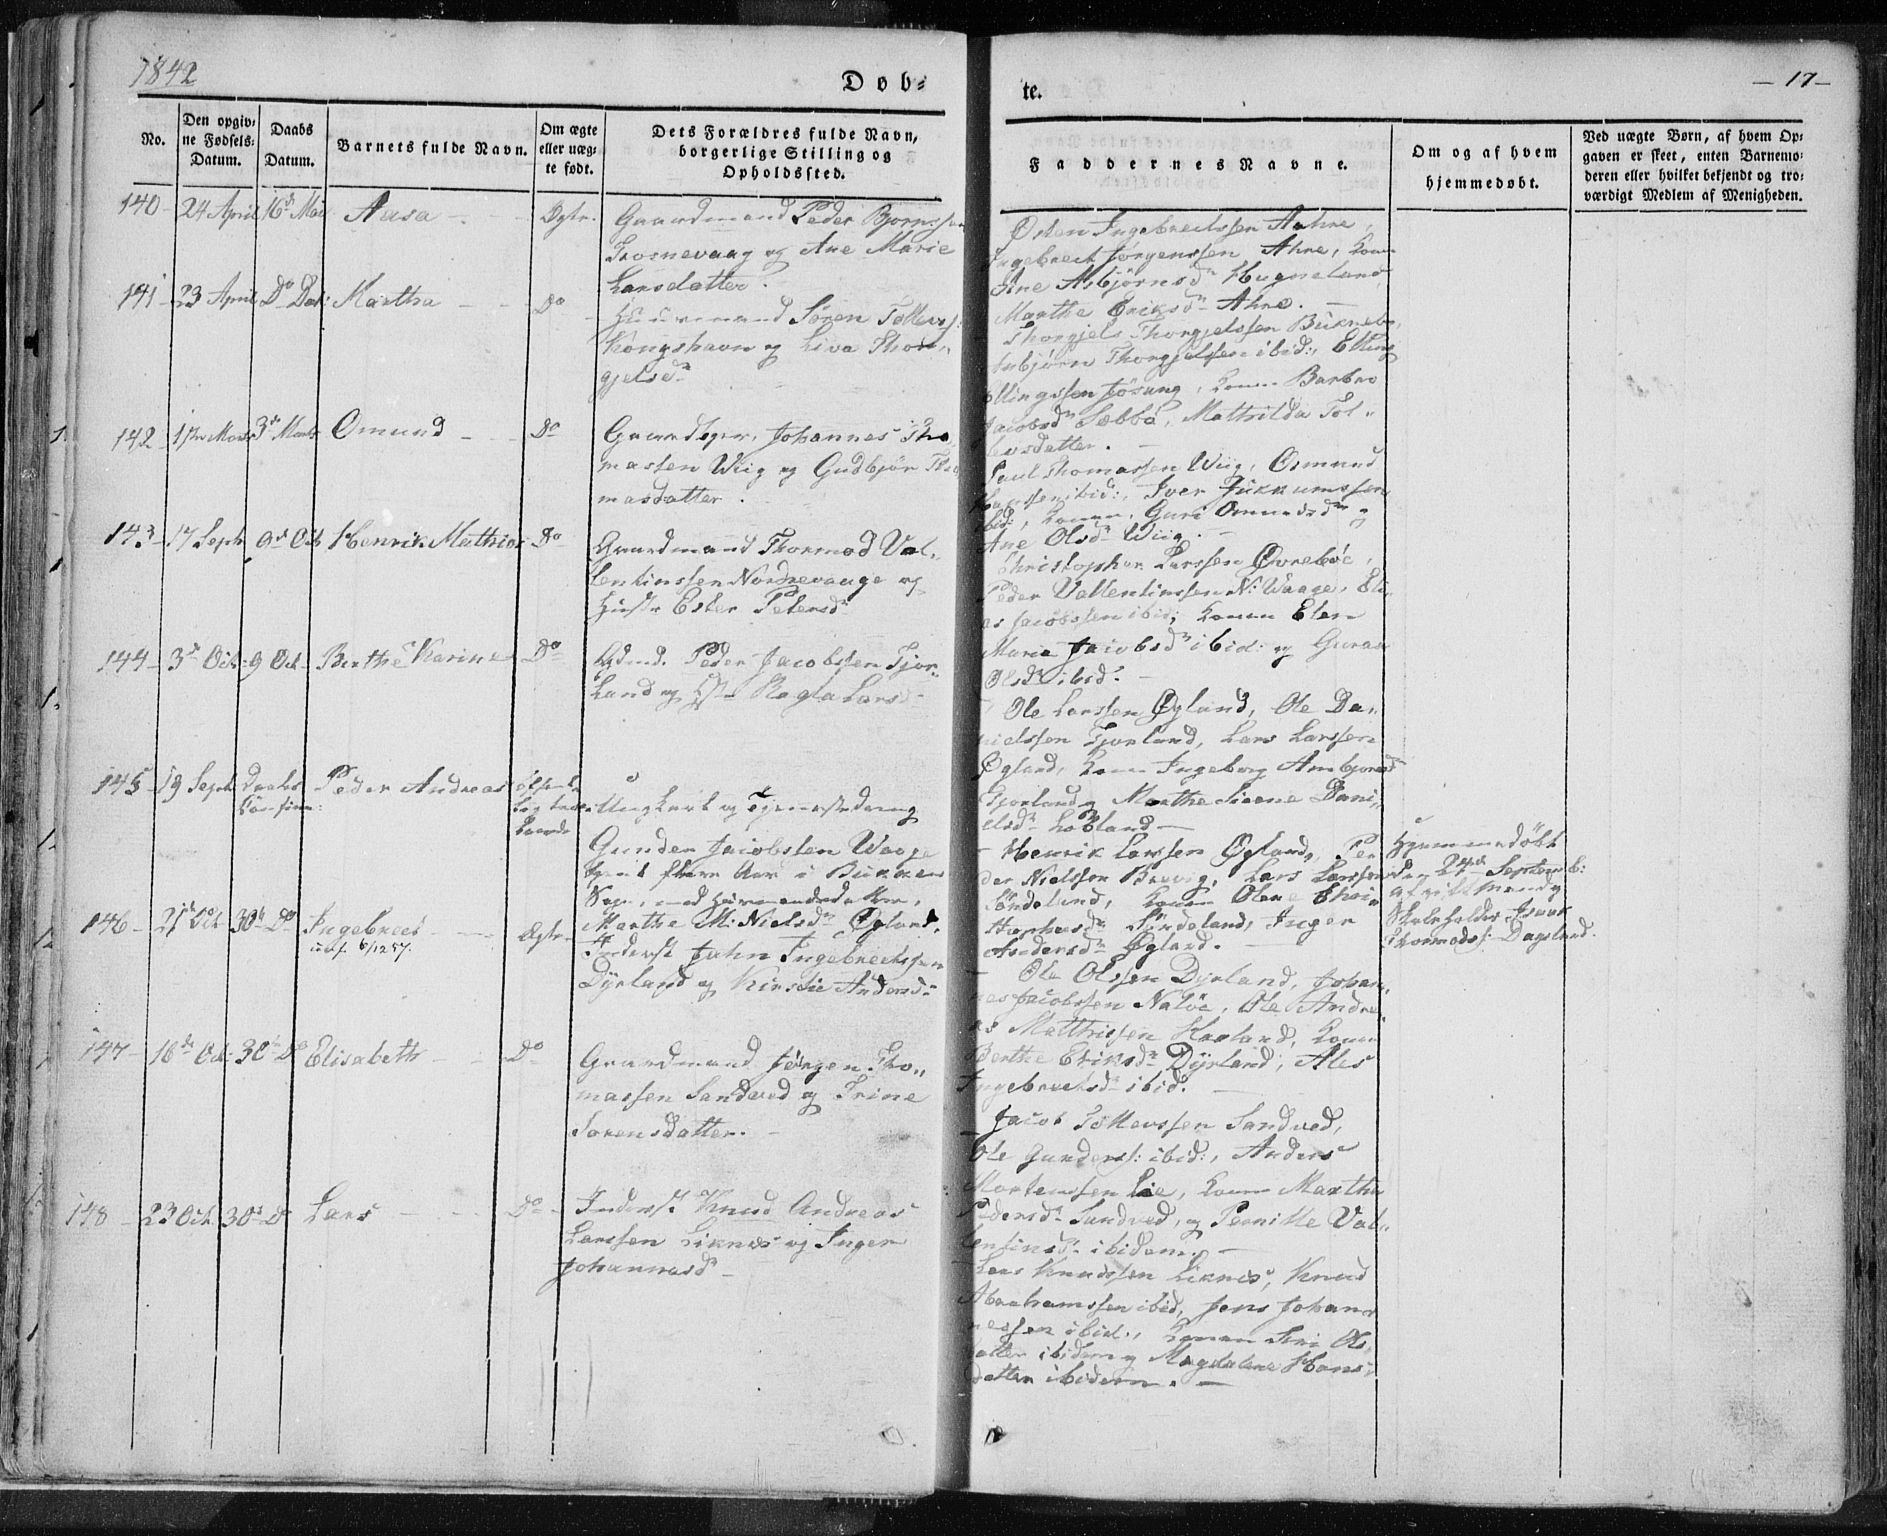 1842
Døb-
te.
- 17 -
No.
Den opgiv-
ne Fødsels-
Datum.
Daabs
Datum.
Barnets fulde Navn.
Om ægte
eller uæg-
te født.
Dets Forældres fulde Navn,
borgerlige Stilling og
Opholdssted.
Faddernes Navne.
Om og af hvem
hjemmedøbt.
Ved uægte Børn, af hvem Op-
gaven er skeet, enten Barnemo-
deren eller hvilket bekjendt og tro-
værdigt Medlem af Menigheden.
140 - 24 April 16de Mai Aasa - Ægte.
Gaardmand Peder Bjørnssen
og Ane Marie
Larsdatter.
Osten Ingebrectssen Aahre,
Ingebrect Jørgenssen Ahre, Kone
Ane Asbjørnsdr Hugneland
Marthe Eriksdr Ahre. -
141 - 23 April Do Dat: Martha - Do
Huusmand Søren Tollevs:
Kongshavn og Liva Thor-
gjelsdr
Thorgjels Thorgjelssen
Asbjørn Thorgjelssen ibid:, Elling
Ellingssen Jøsang, Kone Barbro
Jacobsdr Sæbbø, Mathilda Tol-
levsdatter. -
142 - Omund - Do
Gaardbrger. Johannes Tho-
massen Wiig og Gudbjør Tho
masdatter.
Paul Thomassen Wiig, Osmund
ibid:, Iver
ibid:, Konen Guri Omundsdr og
Ane Olsdr Wiig. -
143 - 17 Septr 9de Oct Henrik Mathias Do
Gaardmand Thormod Val-
lentinssen Nordrevaage og
Hustr Ester Petersdr
Christopher Larssen Øvrebøe,
Peder Vallentinssen N: Waage, Eli-
as Jacobssen ibid; Konen Elen
Maria Jacobsdr ibid: og Guran
Olsdr ibid: -
144 - 3de Oct: 9 Oct - Berthe Karine Do
Gdmd. Peder Jacobssen Tjor-
land og Hst. Ragla Larsd
Ole Larssen Øgland, Ole Da-
nielssen Tjorland, Lars Larssen
Øgland, Kone Ingeborg
Tjorland og Marthe Sirene Dani-
elsdr -
145 - 19 Septr Daabs Peder Andreas
Ungkarl og Tjenestedreng
Gunder Jacobssen Waage
tjent flere Aar i
Sogn, med
Marthe M. Nielsdr Øgland.
- Henrik Larssen Øgland, Pe-
der Nielssen Larssen
Søndeland, Konen Olene Chri-
Søndeland, Inger
Andersdr Øgland. -
Hjemmedøbt
den 24de Septemb:
af
Skoleholder Isaak
Thormods: Dagsland.
146 - 21de Oct 30te Do Ingebrect
6/12 57. Ægte -
Inderst John Ingebrectssen
Dyrland og Kirstie Andersd.
- Ole Olssen Dyrland, Johan-
nes Jacobssen Naløe, Ole Andre-
as Matthiessen Havland, Kone
Berthe Eriksdr Dyrland, Ales
Ingebrectsdr ibid. -
147 - 16de Oct: 30te Do Elisabeth - Do
Gaardmand Jørgen Tho-
massen Sandved og Trine
Sørensdatter. -
Jacob Tollevssen Sandved,
Ole Gunders: ibid:, Anders
Mortenssen Lie, Konen Martha
Pedersdr Sandved, og Pernille Val-
lentinsdr ibidem. -
148 - 23 Oct 30te Do Lars - Do -
Inderst Knud Andreas
Larssen Liknes og Inger
Johannesdr -
Lars Knudssen Liknes, Knud
Abrahamssen ibid, Jens Johan-
nessen ibid., Konen Siri Ols
datter ibidem og Magdalene Hans-
datter ibidem. -